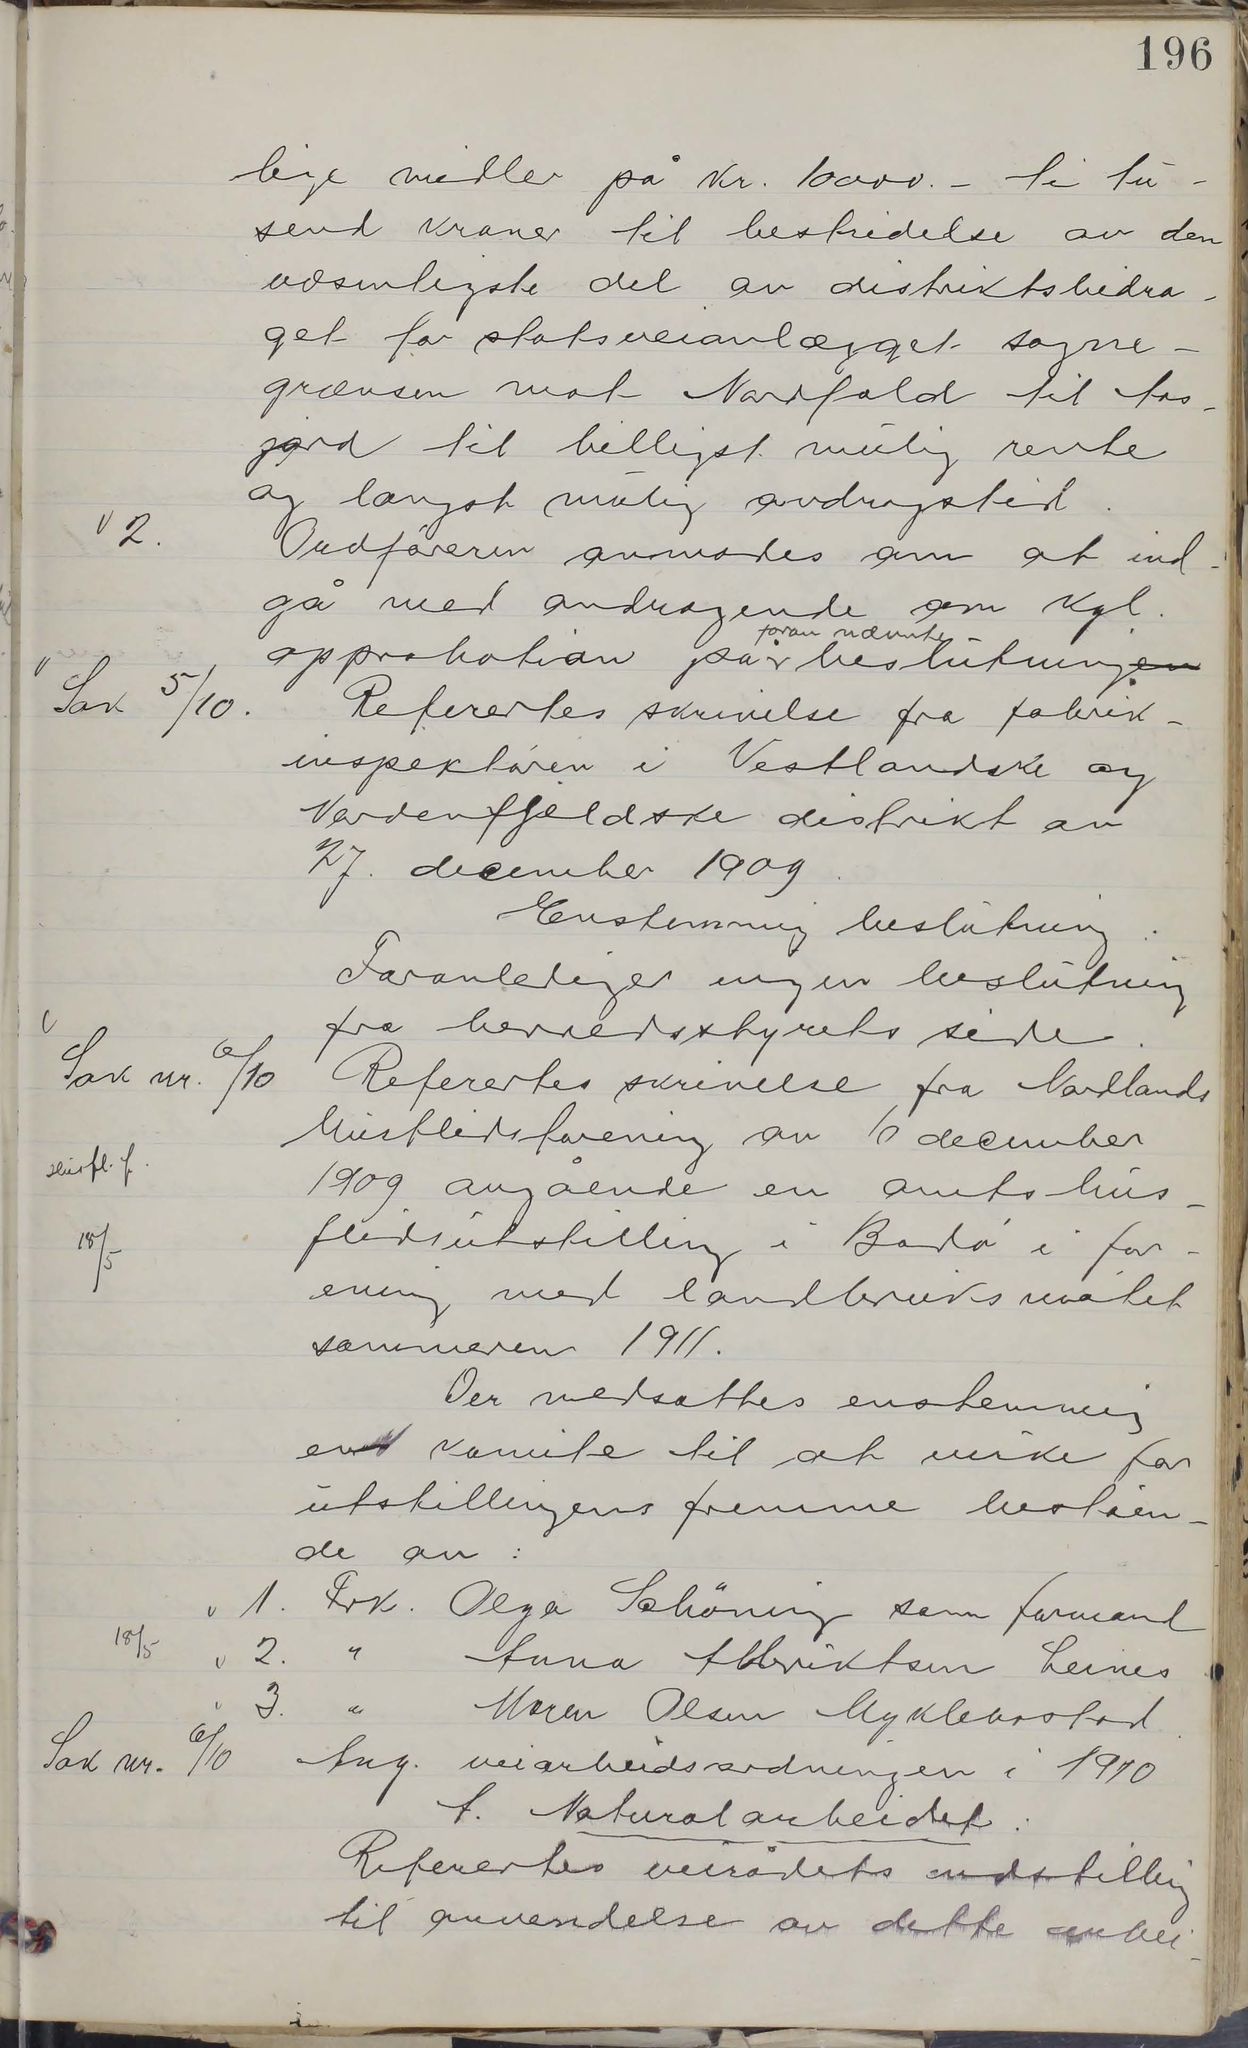 196
lige midler på kr. 10000.- ti tu-
send kroner til bestridelse av den
væsentligste del av distriktsbidra-
get for statsveianlægget sogne-
grænsen mot Nordfold til
til billigst mulig rente
og længst mulig avdragstid.
2. Ordføreren anmodes om at ind-
gå med andragende om kgl.
foran nævnte
approbation på beslutningen
Sak 5/10. Referertes skrivelse fra fabrik-
inspektøren i Vestlandske og
Nordenfjeldske distrikt av
27. december 1909.
Enstemmig beslutning:
Foranlediger ingen beslutning
fra herredsstyrets side.
Sak nr. 6/10 Referertes skrivelse fra Nordlands
Husflidsforening av 10 december
husfl. f. 1909 angående en amtshus-
18/5 flidsutstilling i Bodø i for-
ening med landbruksmøtet
sommeren 1911.
Der nedsattes enstemmig
en komite til at virke for
utstillingens fremme beståen-
de av:
v 1. Frk. Olga Schöning som formand
18/5 v 2. " Anna Albriktsen Leines
v 3. " Maren Olsen Myklebostad.
Sak nr. 6/10 Ang. veiarbeidsordningen i 1910
A. Naturalarbeidet:
Referertes veirådets indstilling
til anvendelse av dette arbei-